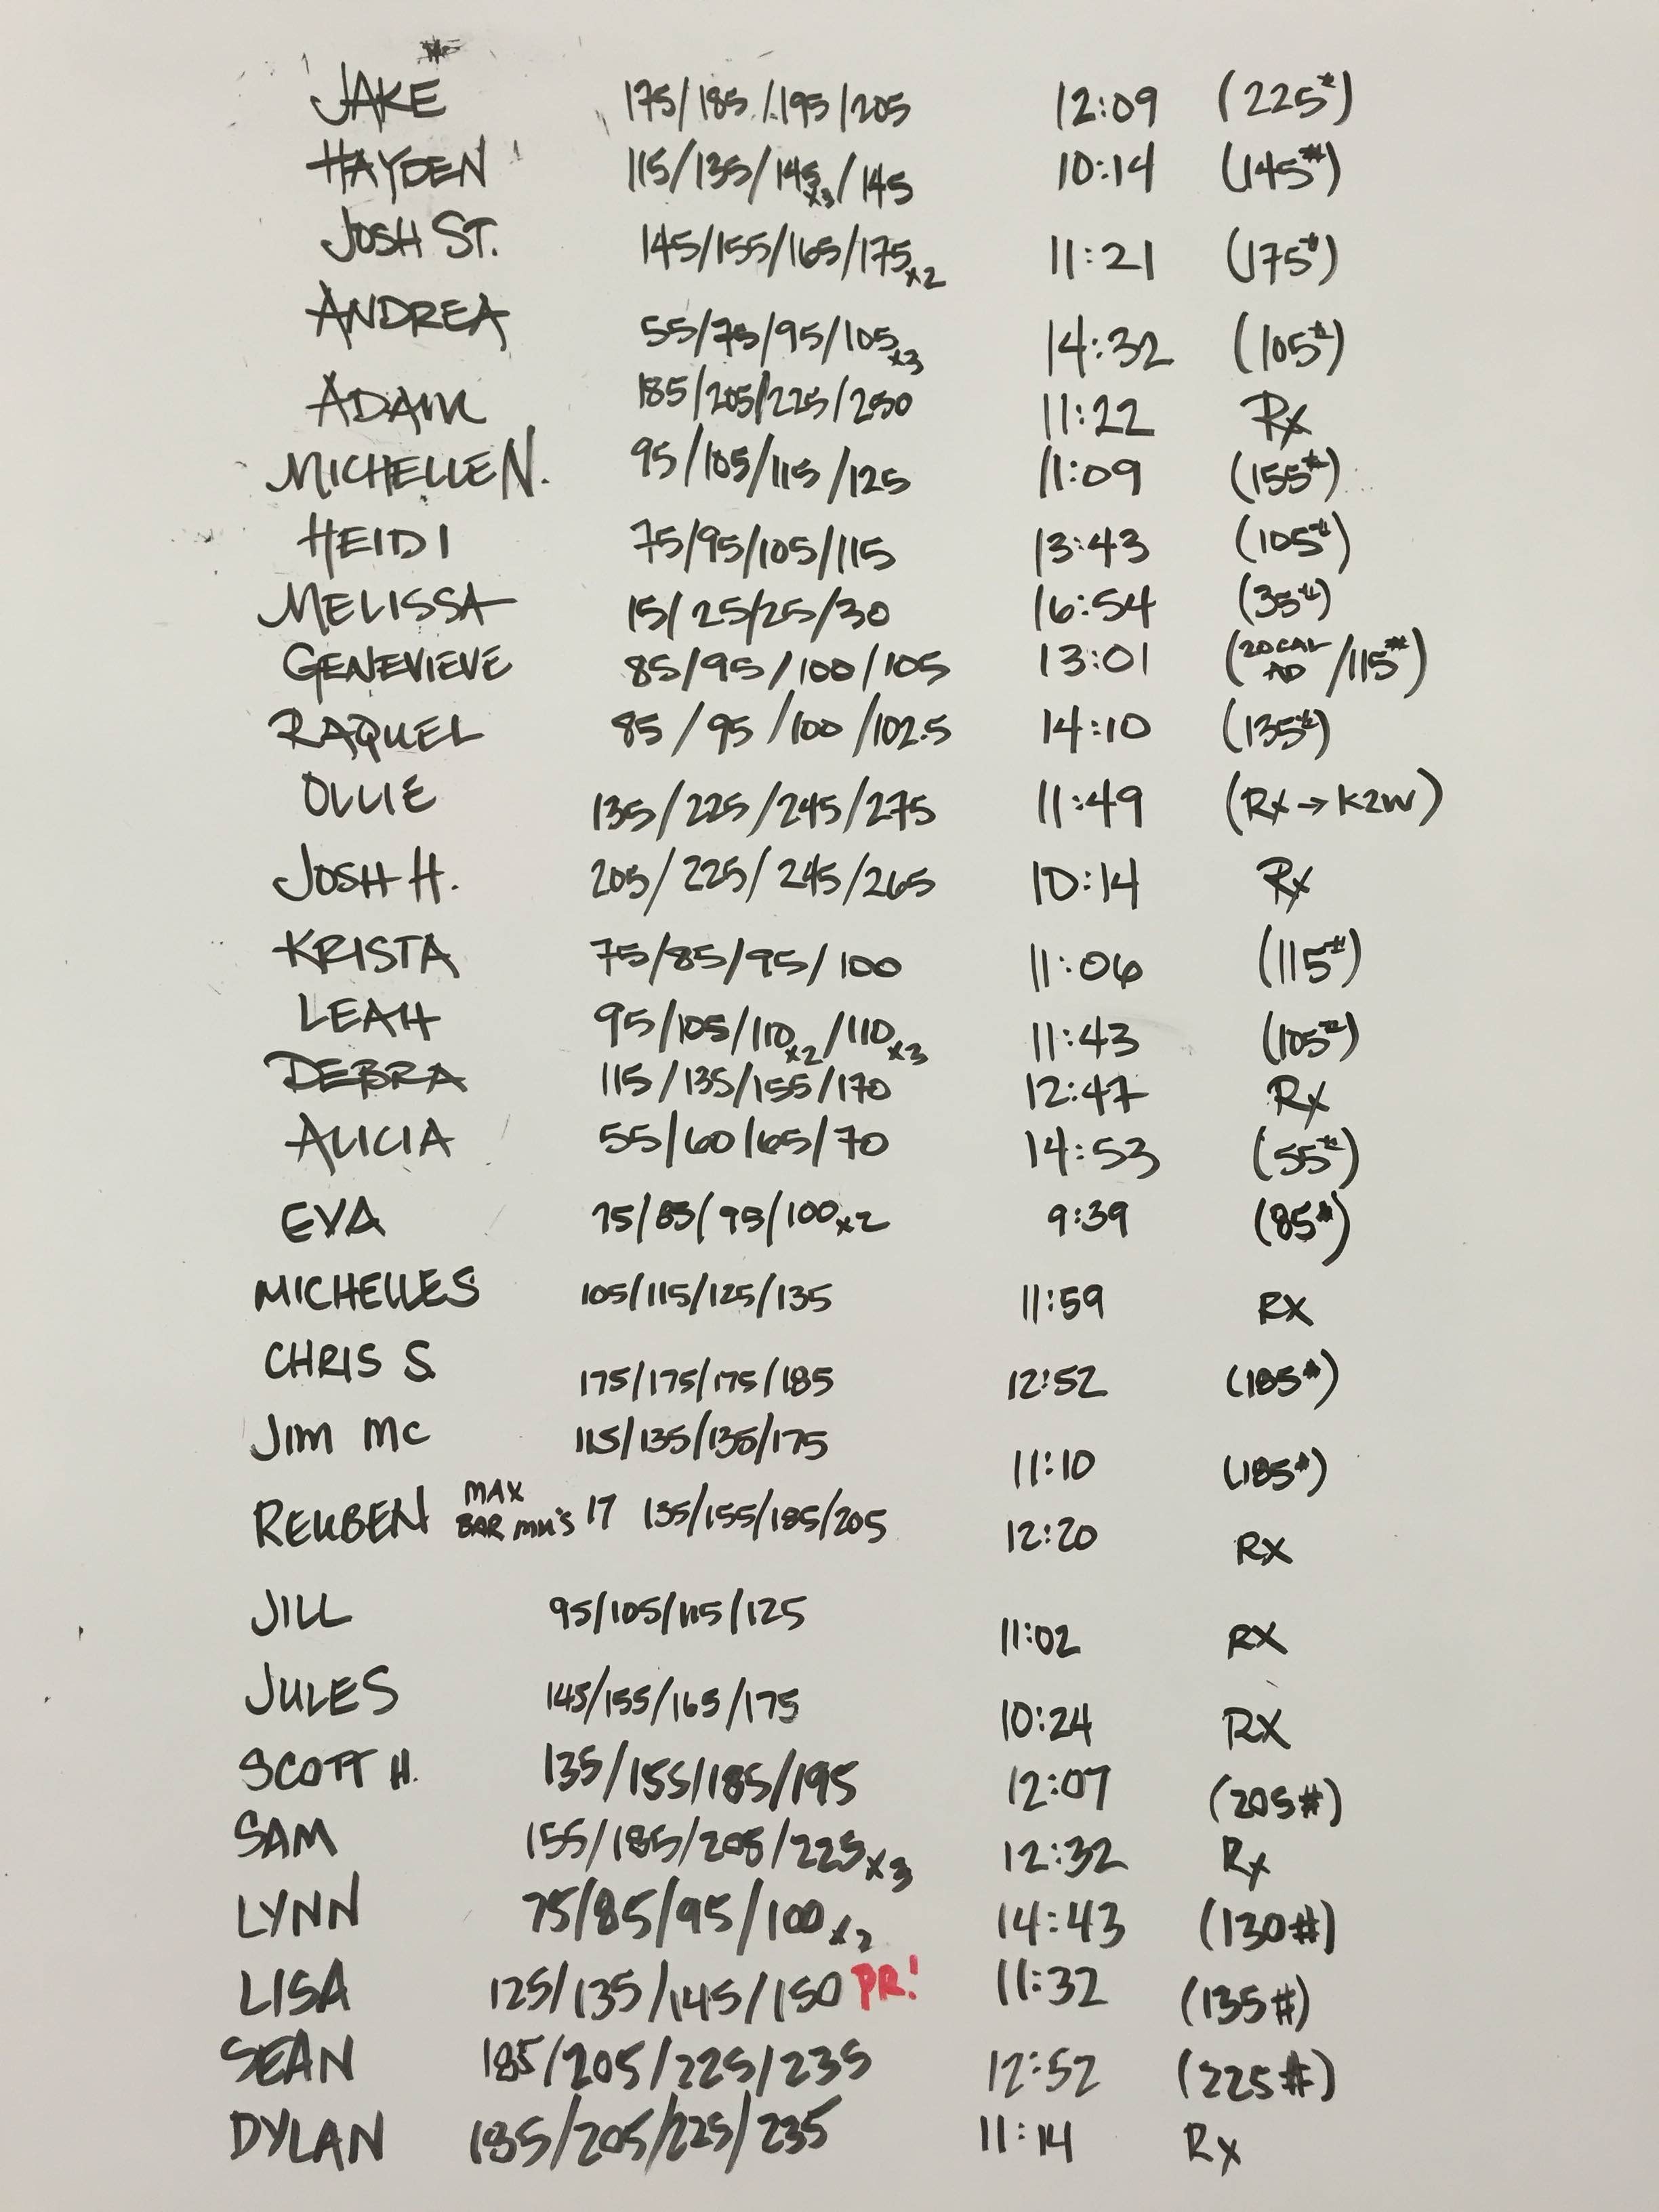 JAKE 175/185/195/205 12:09 (225#)
HAYDEN 115/135/145x3/145 10:14 (145#)
JOSH ST. 145/155/165/175x2 11:21 (175#)
ANDREA 55/75/95/105x3 14:32 (105#)
ADAM 185/205/225/250 11:22 Rx
MICHELLE N. 95/105/115/125 11:09 (155#)
HEIDI 75/95/105/115 13:43 (105#)
MELISSA 15/25/25/30 16:54 (35#)
GENEVIEVE 85/95/100/105 13:01 (20 CAL AD/115#)
RAQUEL 85/95/100/102.5 14:10 (135#)
OLLIE 135/225/245/275 11:49 (Rx→K2W)
JOSH H. 205/225/245/265 10:14 Rx
KRISTA 75/85/95/100 11:06 (115#)
LEAH 95/105/110x2/110x3 11:43 (105#)
DEBRA 115/135/155/170 12:47 Rx
ALICIA 55/60/65/70 14:53 (55#)
EVA 75/85/95/100x2 9:39 (85#)
MICHELLE S 105/115/125/135 11:59 RX
CHRIS S. 175/175/175/185 12:52 (185#)
Jim MC 115/135/135/175 11:10 (185#)
REUBEN MAX BAR MU'S 17 135/155/185/205 12:20 RX
JILL 95/105/115/125 11:02 RX
JULES 145/155/165/175 10:24 RX
SCOTT H. 135/155/185/195 12:07 (205#)
SAM 155/185/205/225x3 12:32 Rx
LYNN 75/85/95/100x2 14:43 (130#)
LISA 125/135/145/150 PR! 11:32 (135#)
SEAN 185/205/225/235 12:52 (225#)
DYLAN 185/205/225/235 11:14 Rx